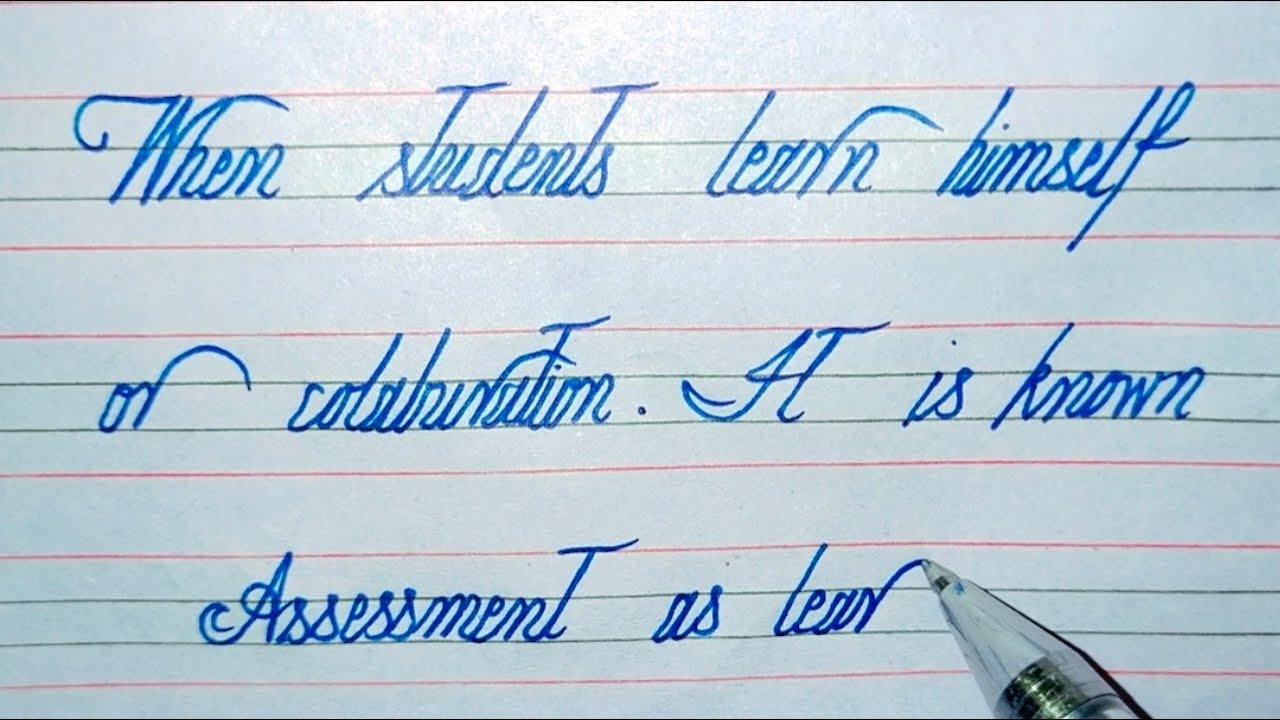 When students learn himself
or colaburation. It is known
Assessment as lear